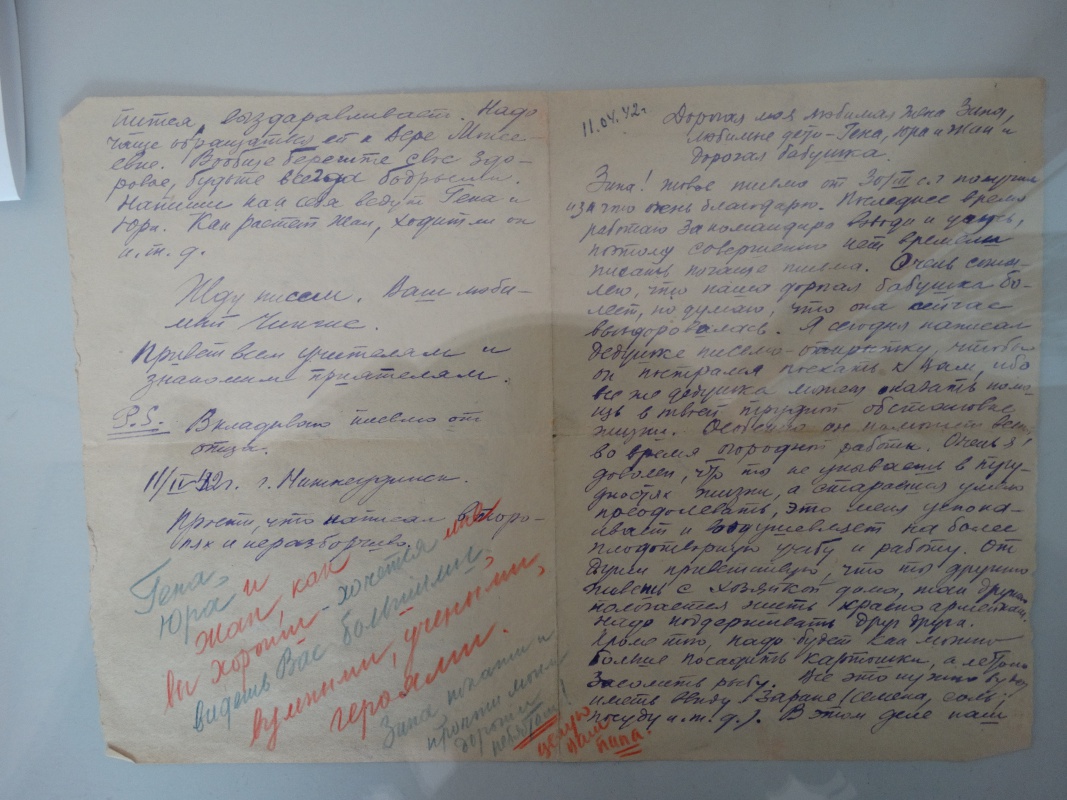 11.04.42г
Дорогая моя любимая жена Зина,
любимые дети – Гена, Юра и Жан и
дорогая бабушка.
Зина! Твое письмо от 30/III с.г. получил
и за что очень благодарю. Последнее время
работаю замкомандира взвода и учусь,
поэтому совершенно нет времени
писать почаще письма. Очень сожа-
лею, что наша дорогая бабушка бо-
леет, но думаю, что она сейчас
выздоровилась. Я сегодня написал
дедушке письмо-открытку, чтобы
он постарался поехать к Вам, ибо
все же дедушка может оказать помо-
щь в твоей трудной обстановке
жизни. Особенно он поможет
во время огородной работы. Очень я
доволен, что ты не унываешь в тру-
дностях жизни, а стараешься умело
преодолевать, это меня успока-
ивает и воодушевляет на более
плодотворную учебу и работу. От
души приветствую, что ты дружно
живешь с хозяйкой дома, так
полагается жить красноармейкам.
Надо поддерживать друг друга.
Кроме того, надо будет как можно
больше посадить картошки, а летом
засолить рыбу. Все это нужно
иметь ввиду заране (семена, соль,
посуду и т.д.). В этом деле
пится, выздаравливает. Надо
чаще обращаться ей к Вере Моисе-
евне. Вообще берегите свое здо-
ровье, будьте всегда бодрыми.
Напиши как себя ведут Гена и
Юра. Как растет Жан, ходит ли он
и.т.д.
Жду писем. Ваш люби-
мый Чингис.
Привет всем учителям и
знакомым приятелям.
P.S. Вкладываю письмо от
отца.
11/IV-42г. г. Нижнеудинск.
Прости, что написал второ-
пях и неразборчиво.
Гена,
Юра и
Жан, как мне
вы хороши - хочется
видеть Вас большими,
умными, учеными,
героями.
Зина покажи и
прочти моим
дорогим
ребятам!
целую
Ваш
папа.